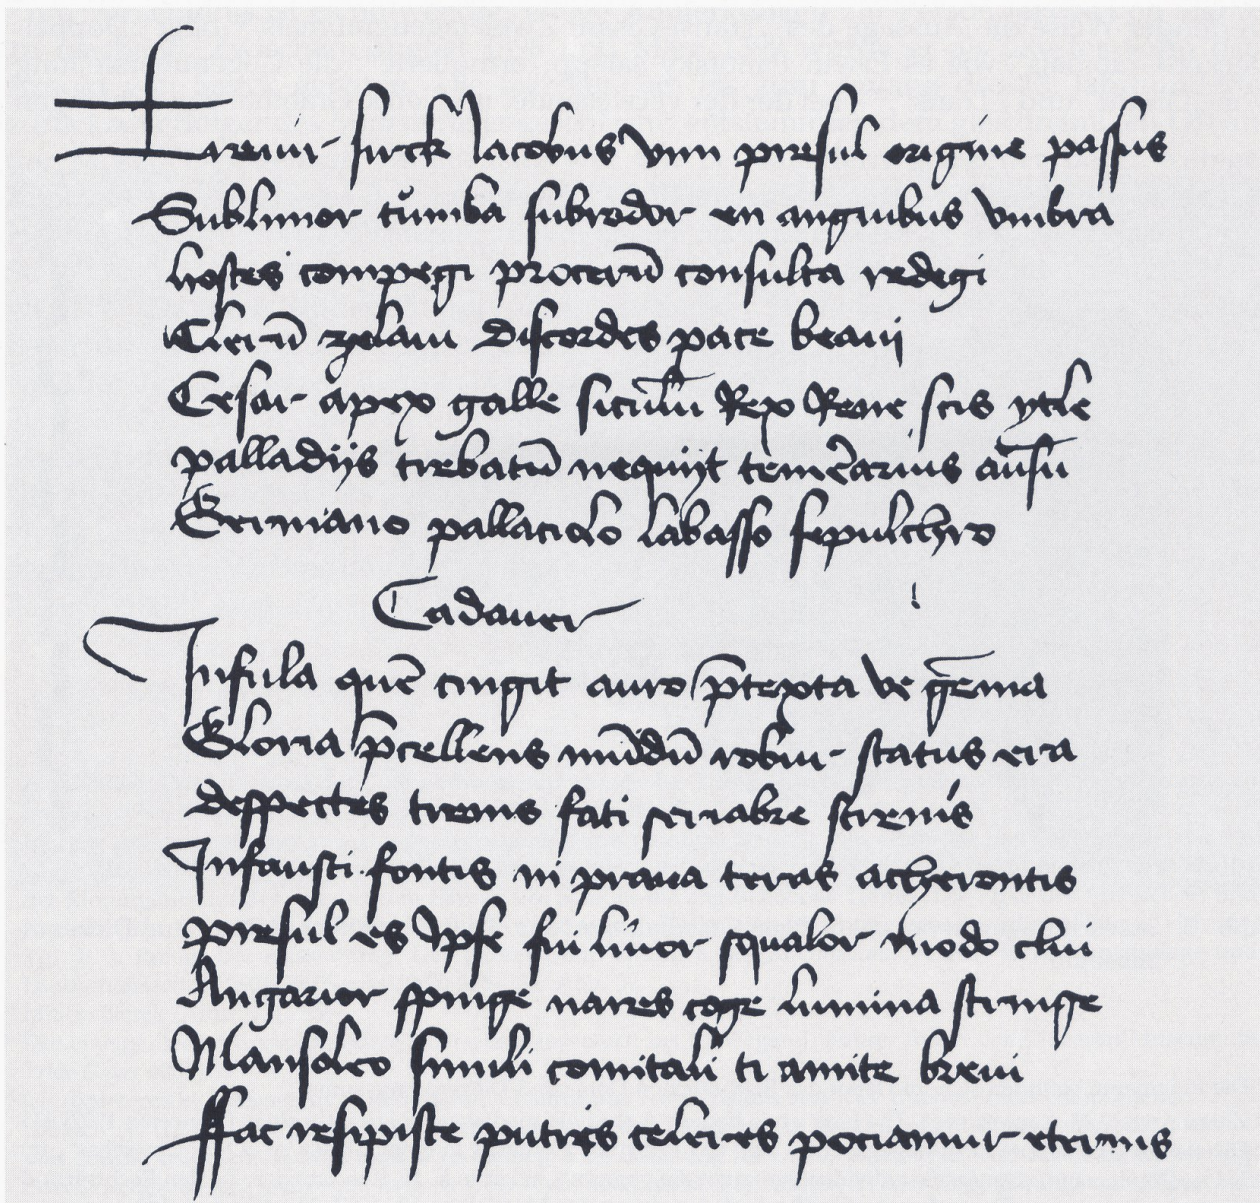 Treuir sirck Jacobus vnn presul origine passus
Sublimor tumba subrodor en anguibus vmbra
hostes compegi procerū consulta redegi
Clerū zelaui discordes pace beaui
Cesar apex galle siculū Rex Rene scis ytle
palladijs trebatū nequijt temerarius ausu
Germano pallaciolo labasso sepulchro
Cadauer
Infula quē cingit auro p̄texta ve gēma
Gloria p̄cellens mūdū robur status era
despectes fati strenis
Infausti fontis ni praua teras acherontis
presul es Ipse fui liuor squalor modo clui
Angarior spinge nares coge lumina stringe
Mausoleo simili comitali ti amite breui
ffac resipiste putres celeres pociamur eternis